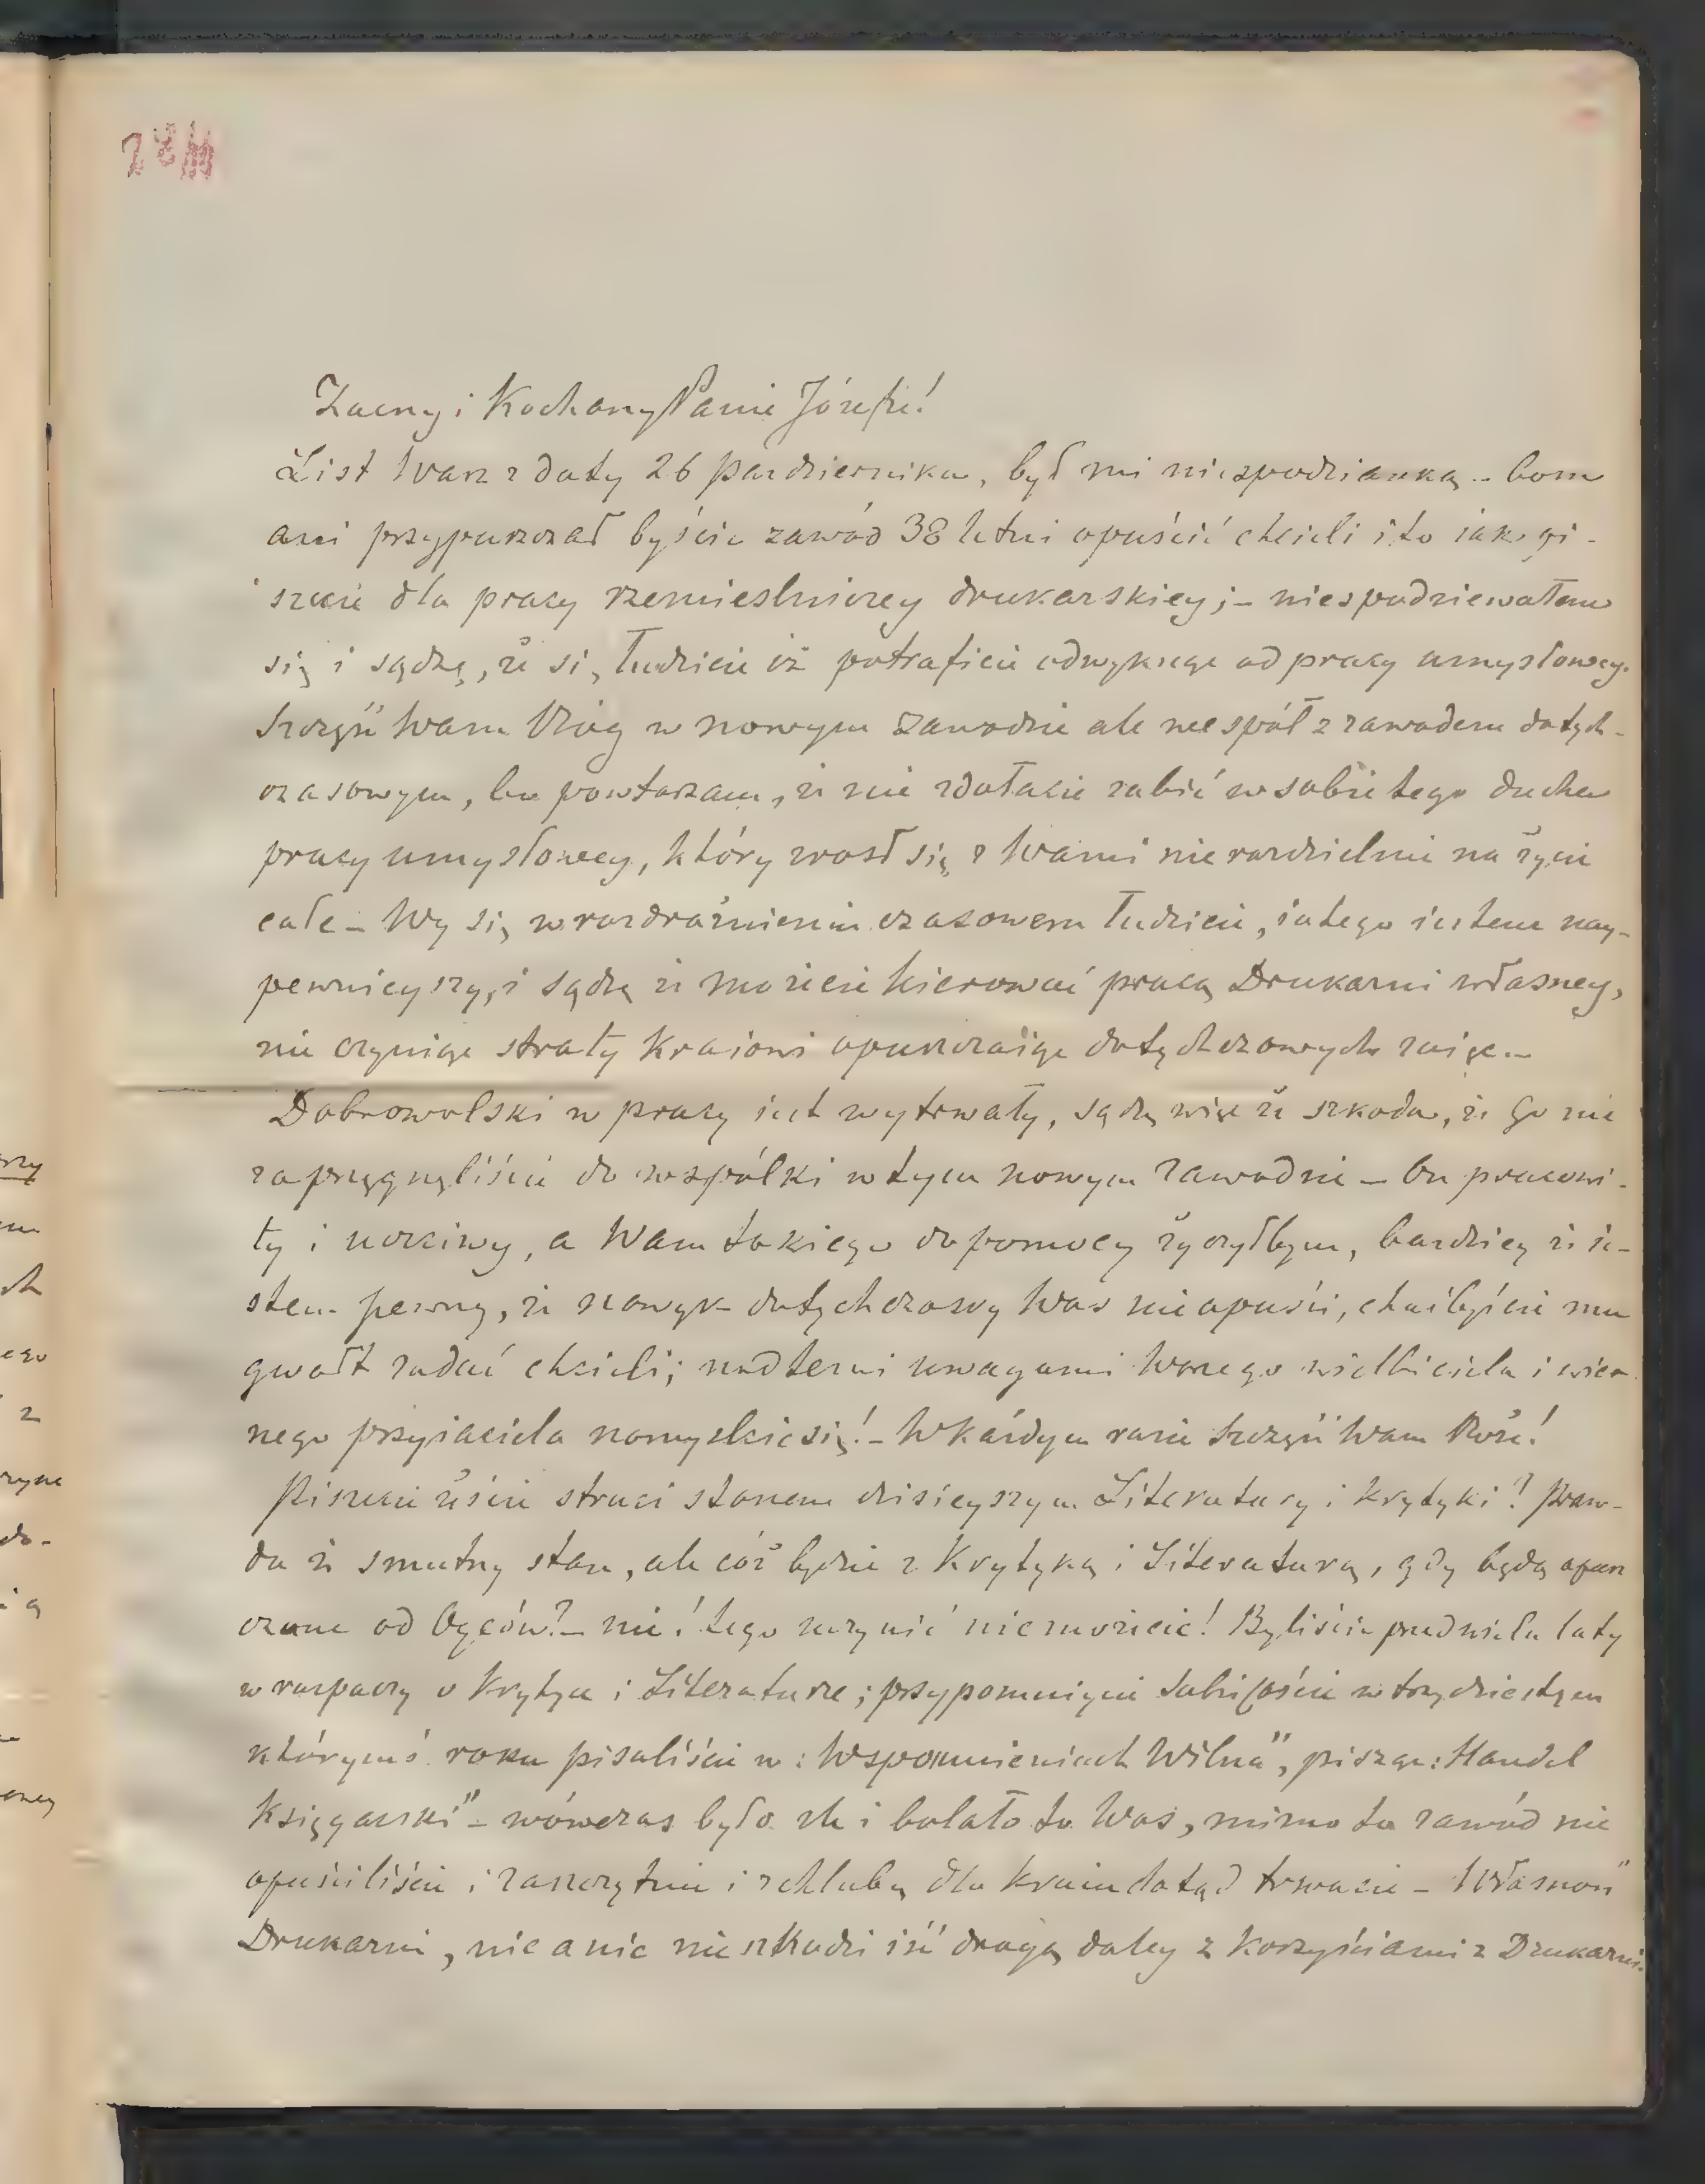 Zacny i Kochany Panie Józefie!
List Wasz z daty 26 Pazdziernika, był mi niespodzianką – bom
ani przypuszczał byście zawód 38 letni opuścić chcieli i to jak pi-
szecie dla pracy rzemieslniczey drukarskiey; – niespodziewałem
się i sądzę, że się łudzicie iż potraficie odwyknąć od pracy umysłowey.
Szczęść Wam Bóg w nowym zawodzie ale wespół z zawodem dotych-
czasowym, bo powtarzam, że nie zdołacie zabić w sobie tego ducha
pracy umysłowey, który zrosł się z Wami nierozdzielnie na życie
całe – Wy się w rozdrażnieniu czasowem łudzicie, ia tego iestem nay-
pewnieyszy, i sądzę że możecie kierować pracą Drukarni własney,
nie czyniąc straty Kraiowi opuszczaiąc dotychczasowych zaięć. –
Dobrowolski w pracy iest wytrwały, sądzę więc że szkoda, że go nie
zaprzęgnęliście do wspólki w tym nowym zawodzie – bo pracowi-
ty i uczciwy, a Wam takiego do pomocy życzyłbym, bardziey że ie-
stem pewny, że nawyk dotychczasowy Was nie opuści, choćbyście mu
gwałt zadać chcieli; nad temi uwagami Waszego wielbiciela i wier-
nego przyiaciela namyślcie się! – W każdym razie Szczęść Wam Boże!
Piszecie żeście struci stanem dzisieyszym Literatury i Krytyki? praw-
da że smutny stan, ale cóż będzie z Krytyką i Literaturą, gdy będą opusz
czone od Oyców? – nie! tego uczynić nie możecie! Byliście przed wielu laty
w rozpaczy o Krytyce i Literaturze; przypomniycie sobie coście w trzydziestym
którymś roku pisaliście w: Wspomnieniach Wilna", pisząc: Handel
Księgarski" – wówczas było źle i bolało to Was, mimo to zawód nie
opuściliście i zaszczytnie i z chlubą dla Kraiu dotąd trwacie – Własność
Drukarni, nic a nic nie szkodzi iść drogą daley z korzyściami z Drukarni.